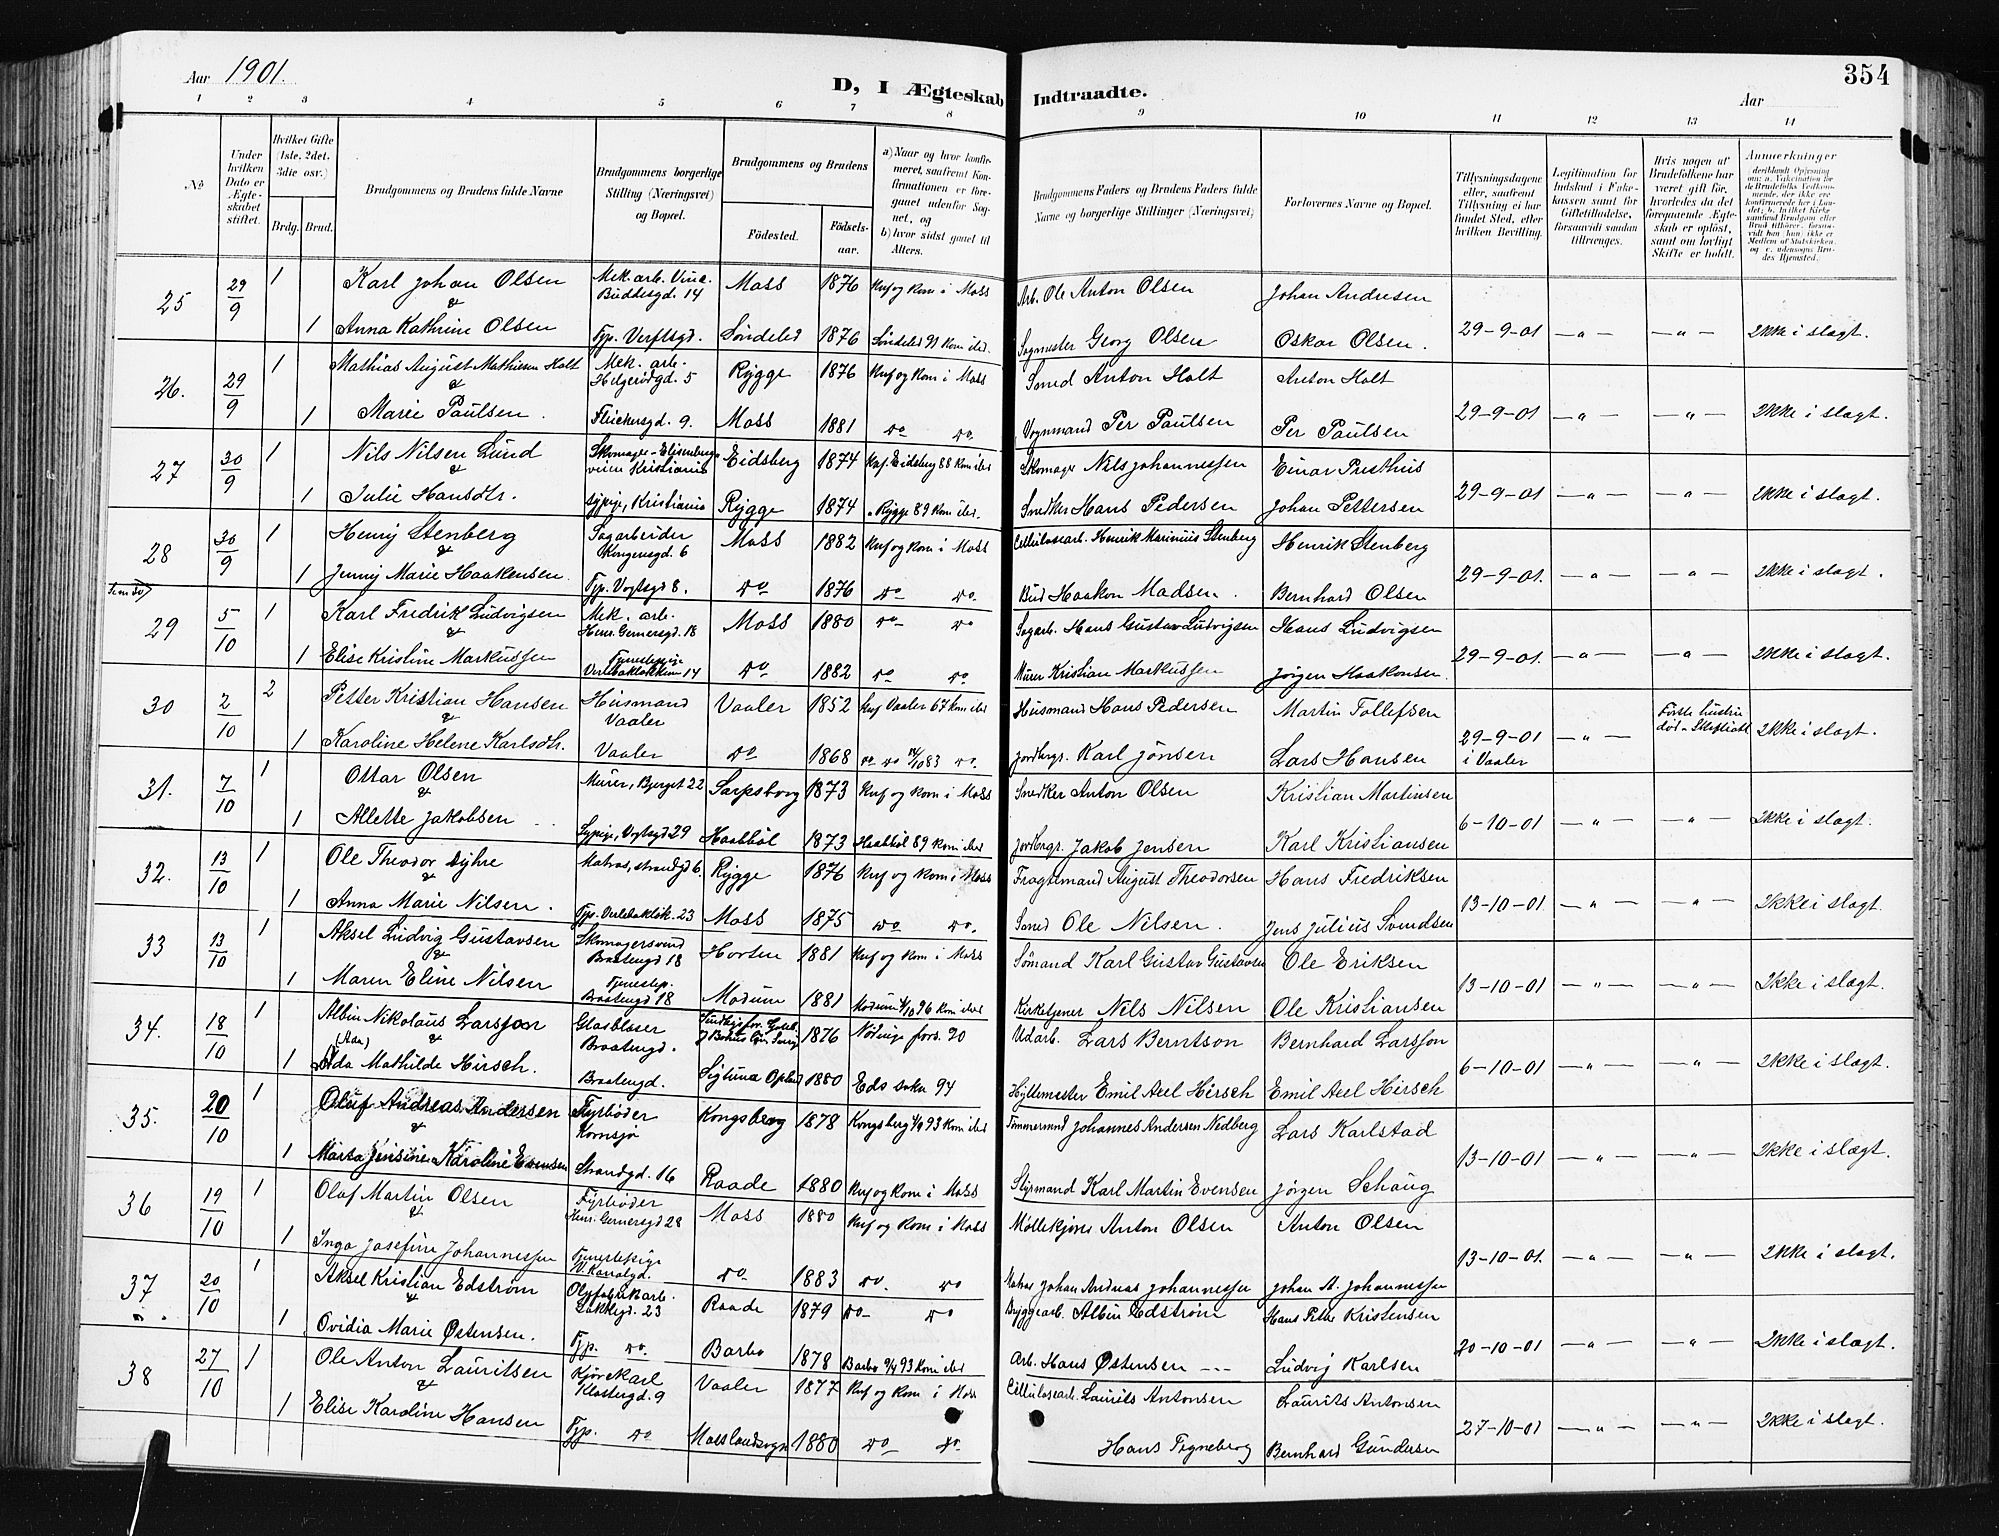 Aar 1901.
D, I Ægteskab Indtraadte.
354
Aar
1 2 3 4 5 6 7 8 9 10 11 12 13 14
No
Under hvilken Dato er Ægteskabet stiftet.
Hvilket Gifte (1ste, 2det, 3die osv.)
Brdg. Brud.
Brudgommens og Brudens fulde Navne
Brudgommens borgerlige Stilling (Næringsvei) og Bopæl.
Brudgommens og Brudens
Födested. Födselsaar.
a) Naar og hvor konfirmeret, saafremt Konfirmationen er foregaaet udenfor Sognet, og b) hvor sidst gaaet til Alters.
Brudgommens Faders og Brudens Faders fulde Navne og borgerlige Stillinger (Næringsvei)
Forlovernes Navne og Bopæl.
Tillysningsdagene eller, saafremt Tillysning ei har fundet Sted, efter hvilken Bevilling.
Legitimation for Indskud i Enkekassen samt for Giftetilladelse, forsaavidt saadan tiltrænges.
Hvis nogen af Brudefolkene har været gift før, hvorledes da det foregaaende Ægteskab er oplöst, samt om lovligt Skifte er holdt.
Anmærkninger
25 29/9 1 Karl Johan Olsen Mek. arb. Vinc. Buddesgd. 14 Moss 1876 Knf og kom i Moss Arb. Ole Anton Olsen Johan Andresen
&
1 Anna Kathrine Olsen Tjp. Verftsgd. Søndeled 1876 Søndeled 91 kom ibd. Sagmester Georg Olsen Oskar Olsen. 29-9-01 —"— —"— Ikke i slægt.
26. 29/9 1 Mathias August Mathiesen Holt Mek. arb. Helgerødgd. 5 Rygge 1876 Knf og kom i Moss Smed Anton Holt Anton Holt
&
1 Marie Paulsen. Fleischersgd. 9. Moss 1881 do do Vognmand Per Paulsen Per Paulsen 29-9-01 —"— —"— Ikke i slægt.
27 30/9 1 Nils Nilsen Lund Skomager Elisenbergveien Kristiania Eidsberg 1874 Knf. Eidsberg 88 kom ibd Skomager Nils Johannessen Einar Presthus
&
1 Julie Hansdtr. Sypige, Kristiania Rygge 1874 " Rygge 89 kom ibd. Snedker Hans Pedersen Johan Pettersen 29-9-01 —"— —"— Ikke i slægt.
28 30/9 1 Henry Stenberg Sagarbeider Kongensgd. 6 Moss 1882 Knf og kom i Moss Cellulosearb. Henrik Marinius Stenberg Henrik Stenberg
&
1 Jenny Marie Haakensen. Tjp. Vogtsgd 8. do 1876 do do Bud Haakon Madsen. Bernhard Olsen 29-9-01. —"— —"— Ikke i slægt.
29 5/10 1 Karl Fredrik Ludvigsen Mek. arb. Henr. Gernersgd. 18 Moss 1880 do do Sagarb. Hans Gustav Ludvigsen Hans Ludvigsen
&
1 Elise Kristine Markussen Tjenestepige Verlebakløkken 14 do 1882 do do Murer Kristian Markussen Jørgen Haakonsen. 29-9-01. —"— —"— Ikke i slægt.
30 2/10 2 Petter Kristian Hansen Husmand Vaaler Vaaler 1852 Knf Vaaler 67 kom ibd Husmand Hans Pedersen Martin Tollefsen Første hustru død
&
1 Karoline Helene Karlsdtr. Vaaler do 1868 do do 14/10 83 do. Jordbrgr. Karl Jønsen Lars Hansen 29-9-01 i Vaaler —"— Ikke i slægt.
31. 7/10 1 Ottar Olsen Murer, Bjerget 22 Sarpsborg 1873 Knf og kom i Moss Snedker Anton Olsen Kristian Martinsen
&
1 Alette Jakobsen Sypige, Vogtsgd 29 Haabböl 1873 Haabböl 89 kom ibd Jordbrgr. Jakob Jensen Karl Kristiansen 6-10-01 —"— —"— Ikke i slægt.
32. 13/10 1 Ole Theodor Syhre Matros, strandgd 6. Rygge 1876 Knf og kom i Moss Fragtemand August Theodorsen Hans Fredriksen
&
1 Anna Marie Nilsen. Tjp. Verlebakløk. 23 Moss 1875 do do. Smed Ole Nilsen. Jens Julius Svendsen 13-10-01. —"— —"— Ikke i slægt.
33 13/10 1 Aksel Ludvig Gustavsen Skomagersvend Braatengd 18 Horten 1881 Knf og kom i Moss Sømand Karl Gustav Gustavsen Ole Eriksen
&
1 Maren Eline Nilsen Tjenestep. Braatengd 18 Modum 1881 Modum 4/10 96 kom ibd Kirketjener Nils Nilsen Ole Kristiansen 13-10-01 —"— —"— Ikke i slægt.
34. 18/10 1 Albin Nikolaus Larsson Glasblæser Braatengd. 1876 Nödinge fors. 90 Udarb. Lars Berntson Bernhard Larsson
&
1 Ida Mathilde Hirsch. Braatengd. Sigtuna Opland 1880 Eds sokn 94 Hyttemester Emil Axel Hirsch Emil Axel Hirsch 6-10-01 —"— —"— Ikke i slægt.
35. 20/10 1 Oluf Andreas Andersen Fyrbøder Kornsjø Kongsberg 1878 Kongsberg 1/10 93 kom ibd Tømmermnd Johannes Andersen Nedberg Lars Karlstad
&
1 Marta Jensine Karoline Evensen Strandgd. 16 Raade 1880 Knf og kom i Moss Styrmand Karl Martin Evensen Jørgen Schaug 13-10-01 —"— —"— Ikke i slægt.
36 19/10 1 Olaf Martin Olsen Fyrbøder Henr. Gernersgd 28 Moss 1880 Knf og kom i Moss Anton Olsen Anton Olsen
&
1 Inga Josefine Johannessen Tjenestepige N. Kanalgd. do 1883 do. do Matros Johan Andreas Johannessen Johan A. Johannessen 13-10-01. —"— —"— Ikke i slægt.
37 20/10 1 Aksel Kristian Edstrøm Oljefabrikarb. Løkkegd. 23 Raade 1879 do do Byggearb. Albin Edstrøm Hans Petter Kristensen
&
1 Ovidia Marie Østensen. Tjp. do. Barbo 1878 Barbo 9/4 93 kom ibd Arb. Hans Østensen Ludvig Karlsen 20-10-01 —"— —"— Ikke i slægt.
38 27/10 1 Ole Anton Lauritsen Kjørekarl Klostergd. 9 Vaaler 1877 Knf og kom i Moss Cellulosearb. Laurits Antonsen Laurits Antonsen
&
1 Elise Karoline Hansen Tjp. do Moss landsogn 1880 do do. Hans Tegneberg Bernhard Gundersen 27-10-01 —"— —"— Ikke i slægt.